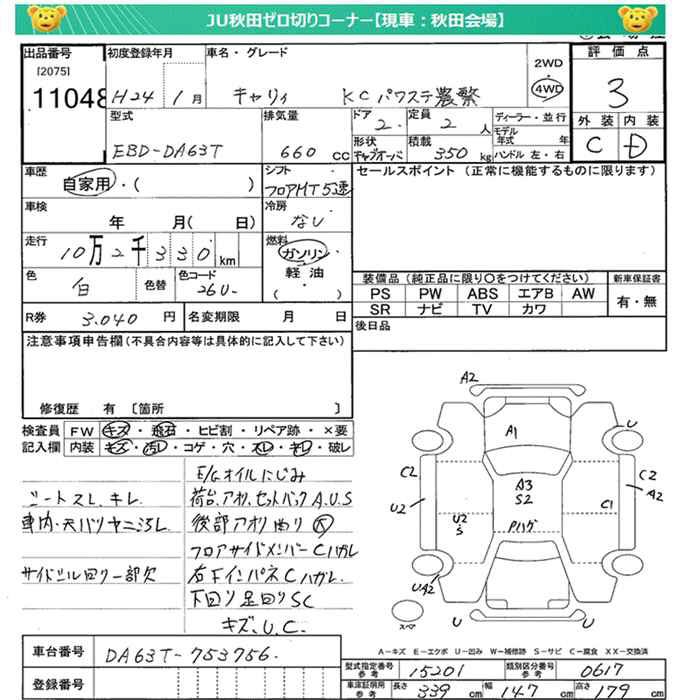 JU秋田ゼロ切りコーナー【現車:秋田会場】
出品番号 初度登録年月 車名・グレード 2WD 評価点
[2075] 11048 H24 1月 キャリィ KC パワステ農繁 4WD 3
型式 排気量 ドア 2 定員 2人 ディーラー・並行 外装 内装
EBD-DA63T 660cc 形状 キャブオーバ 積載 350kg モデル年式 年 C D
ハンドル 左・右
車歴 シフト セールスポイント(正常に機能するものに限ります)
自家用・( ) フロアMT5速
車検 冷房
年 月( 日) なし
走行 燃料
10万2千330km ガソリン・
色 色替 色コード 軽油・ 装備品(純正品に限り○をつけてください) 新車保証書
白 26U- ( ) PS PW ABS エアB AW 有・無
SR ナビ TV カワ
R券 3.040円 名変期限 月 日 後日品
注意事項申告欄(不具合内容等は具体的に記入して下さい)
修復歴 有 〔箇所 〕
検査員 FW キズ・飛石・ヒビ割・リペア跡・×要
記入欄 内装 キズ・汚レ・コゲ・穴・スレ・キレ・破レ
E/Gオイルにじみ
シートスレ、キレ 荷台、アオリ、セットバックA.U.S
後部アオリ曲り 大
フロアサイドメンバーCハガレ
サイドシル回り一部欠 右下インパネCハガレ
下回り足回りSC
キズ、U.C.
A2
A1
U
C2 A3 S2 C2 A2
U2 U2 S C1
Pハゲ
UA2
U U
スペア
A-キズ E-エクボ U-凹み W-補修跡 S-サビ C-腐食 XX-交換済
車台番号 DA63T-753756
型式指定番号 参考 15201 類別区分番号 参考 0617
登録番号 車庫証明用 参考 長さ 339cm 幅 147cm 高さ 179cm